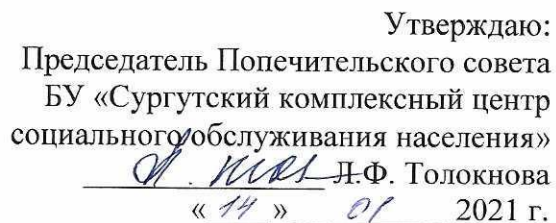 Утверждаю:
Председатель Попечительского совета
БУ «Сургутский комплексный центр
социального обслуживания населения»
Л.Ф. Толокнова
« 14 » 01 2021 г.